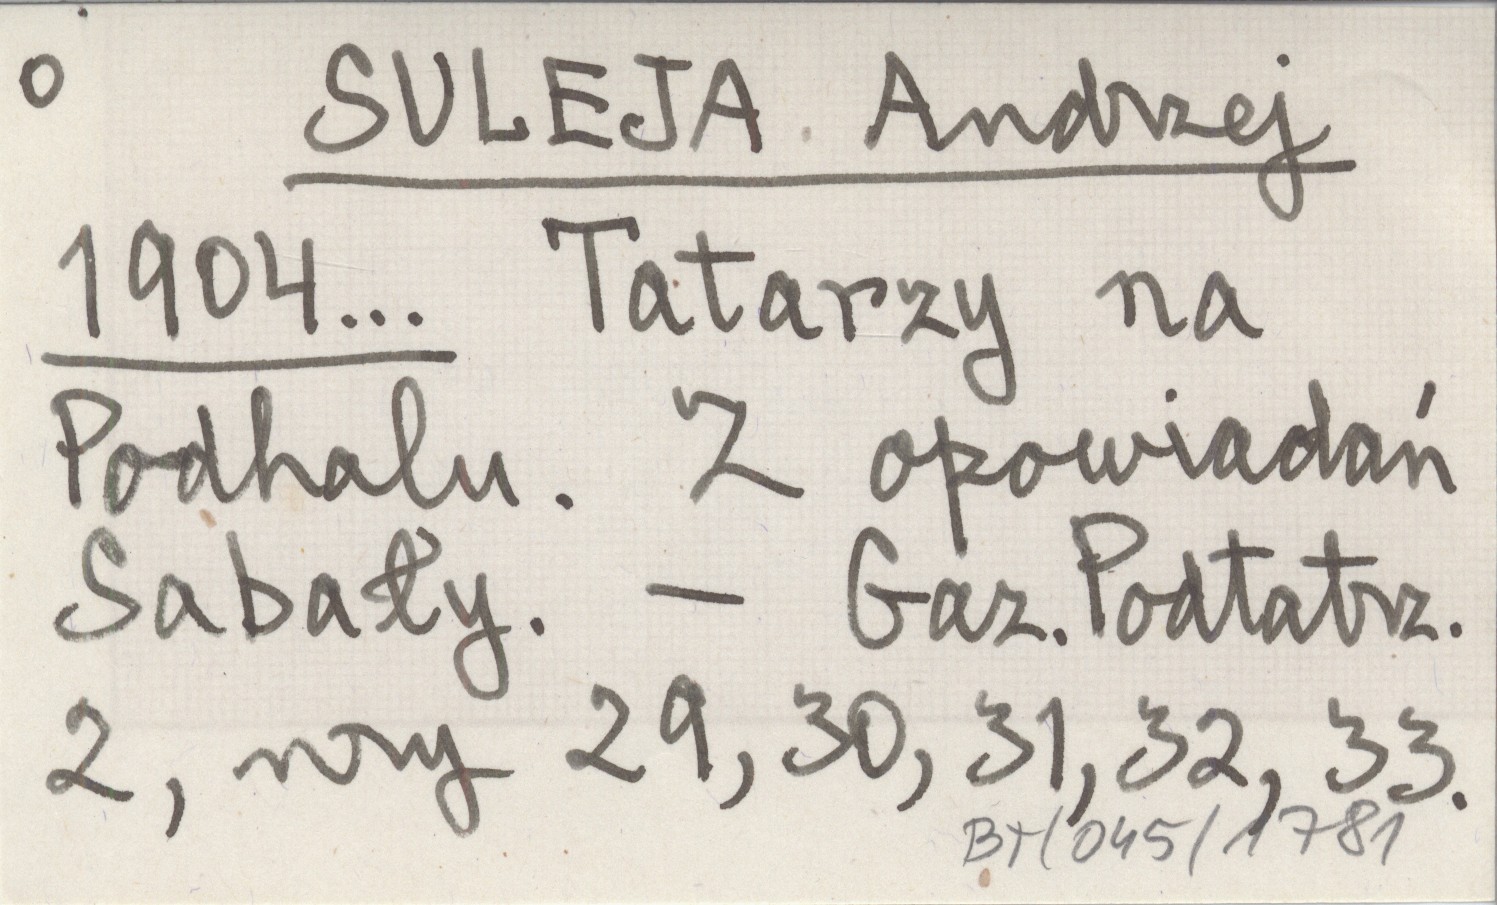 o SULEJA Andrzej
1904... Tatarzy na
Podhalu. Z opowiadań
Sabały. — Gaz. Podtatrz.
2, nry 29, 30, 31, 32, 33.
BT/045/1781